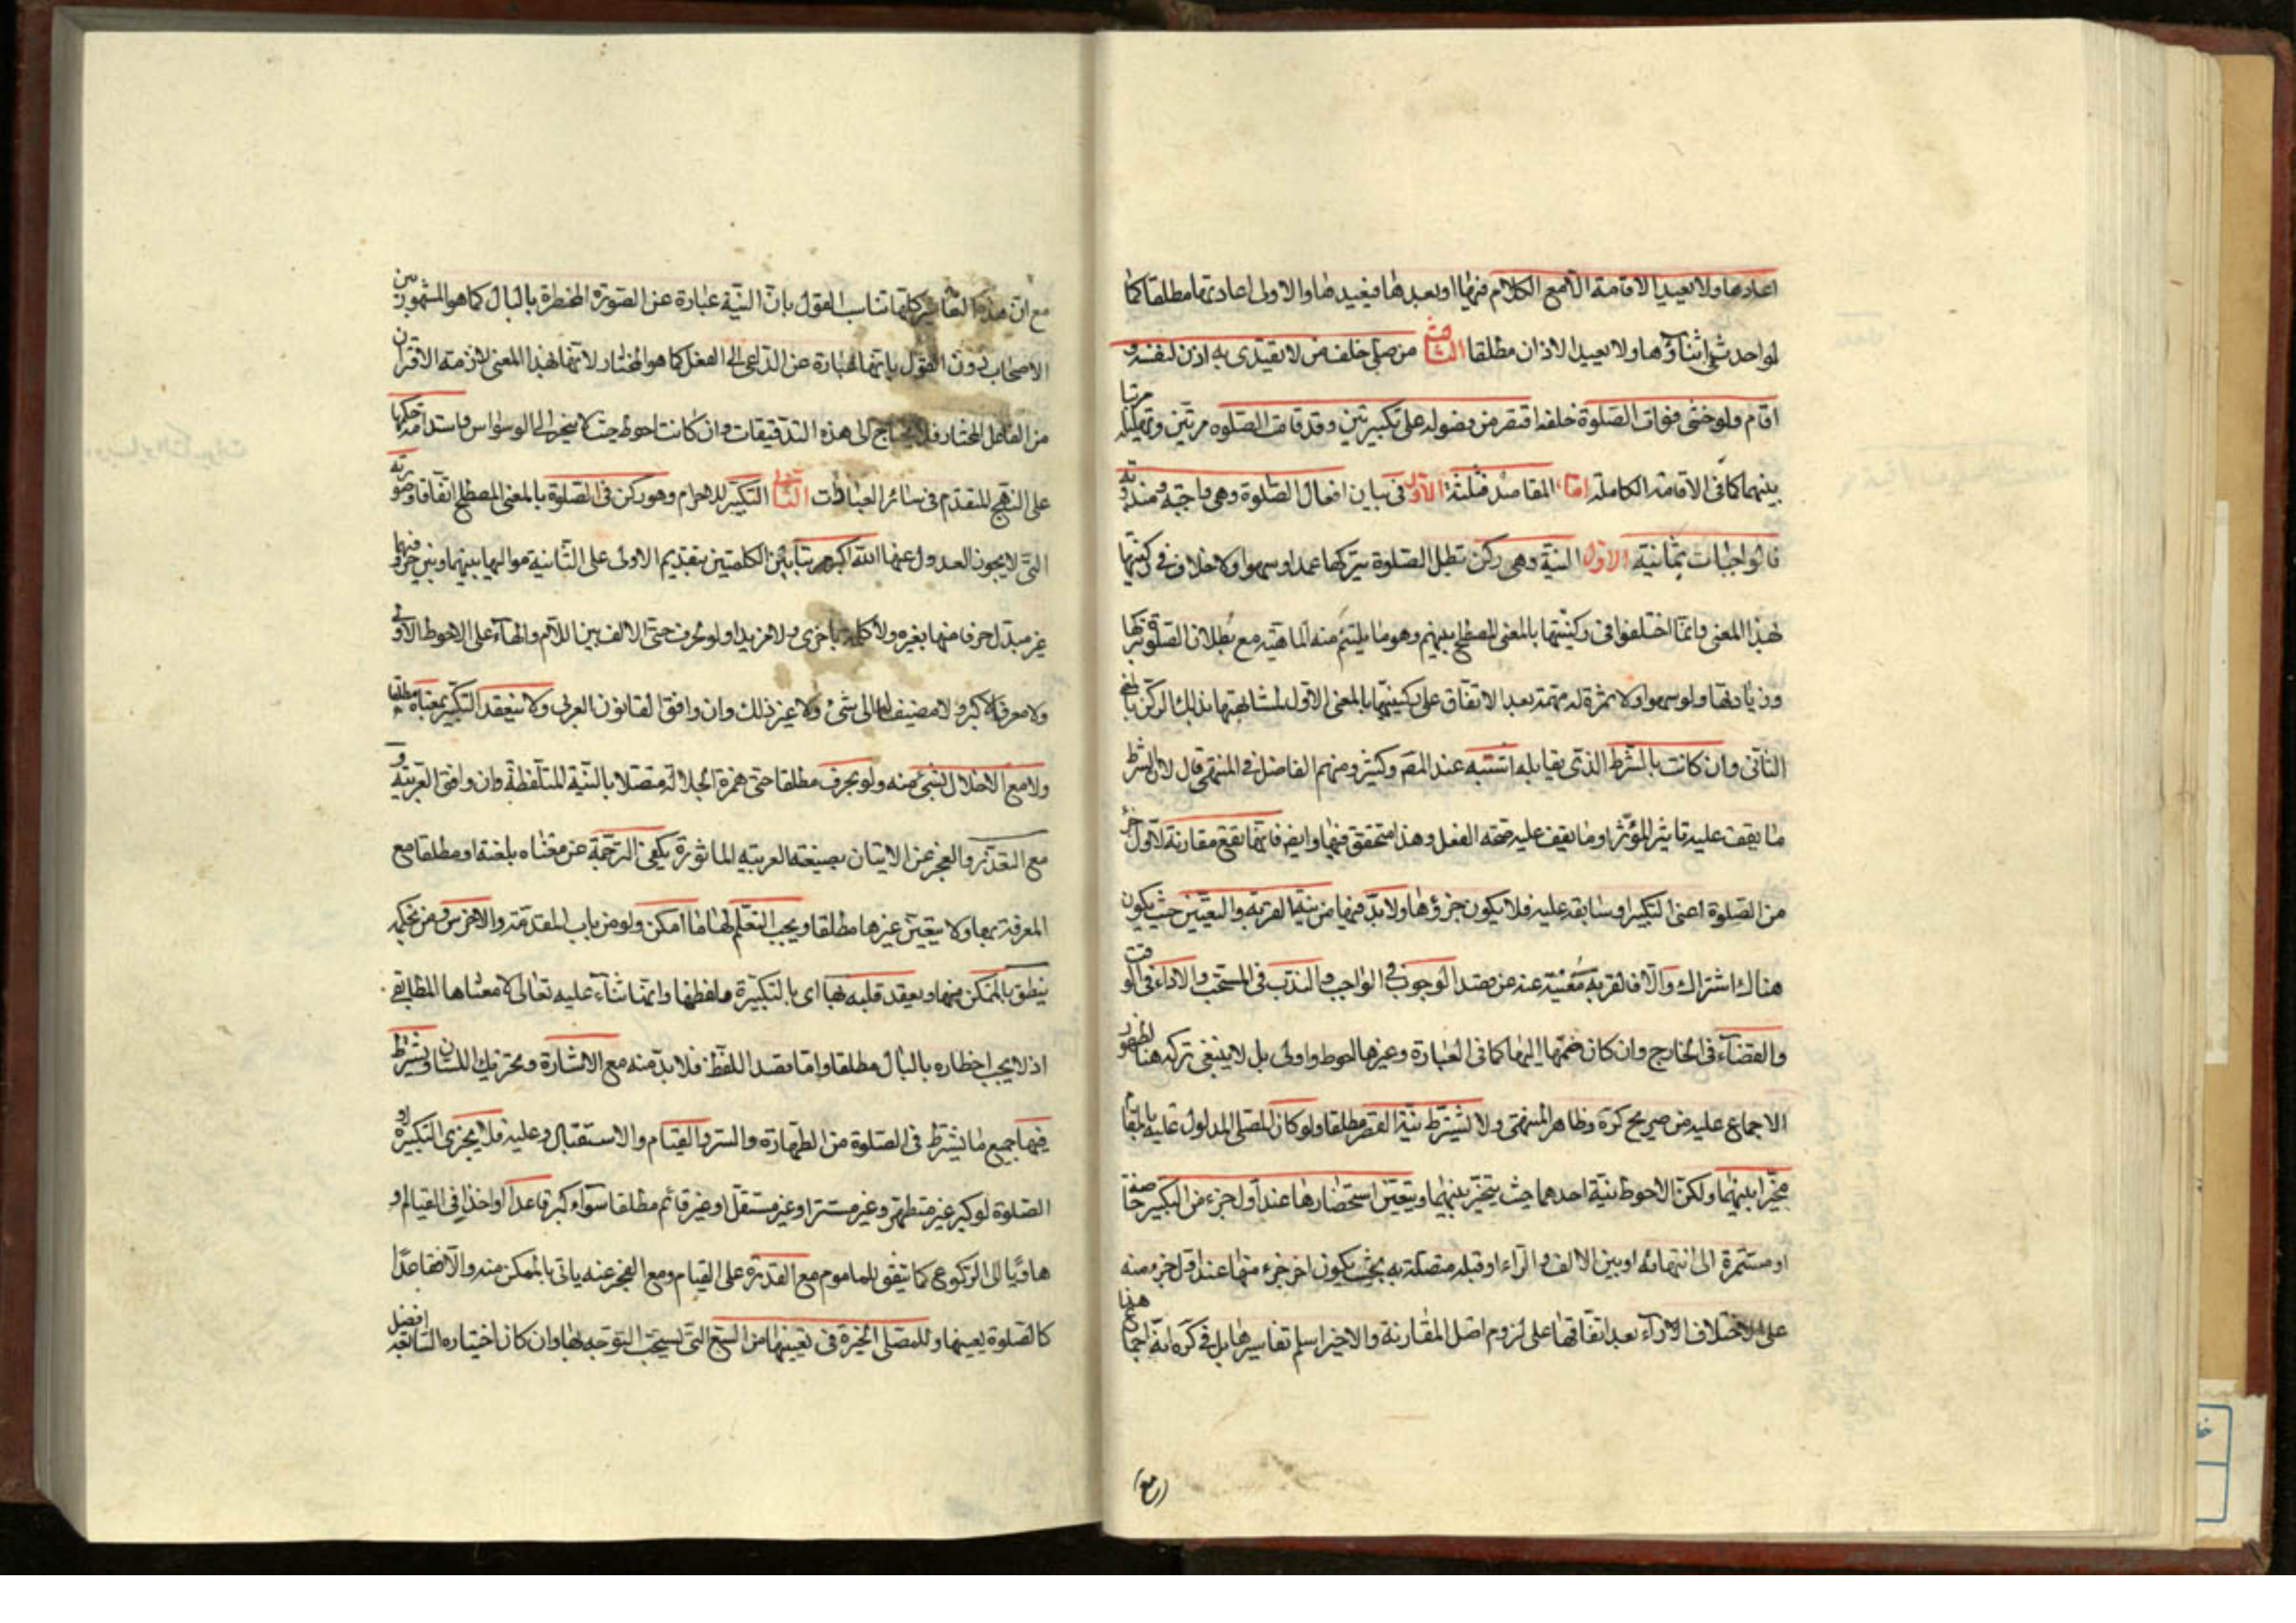 اعادها ولا يعيد الاقامة الا مع الكلام فيها او بعدها فيعيدها والاولى اعادتها مطلقا كما
لو احدث في اثناؤها ولا يعيد الاذان مطلقا الثامن من صلى خلف من لا يقتدى به اذن لنفسه و
اقام ولو خشى فوات الصلوة خلفه اقتصر من فصوله على تكبيرتين وقد قامت الصلوه مرتين وتهليله مرتبا
بينهما كما فى الاقامة الكاملة امّا المقاصد فثلثة الاول فى بيان افعال الصلوة وهى واجبة ومندوبة
فالواجبات ثمانية الاول النية وهى ركن تبطل الصلوة بتركها عمدا وسهوا ولا خلاف فى ركنيتها
بهذا المعنى وانما اختلفوا فى ركنيتها بالمعنى المصطلح بينهم وهو ما يلتئم منه الماهية مع بطلان الصلوة بتركها
وزيادتها ولو سهوا ولا ثمرة له مهمة بعد الاتفاق على ركنيتها بالمعنى الاول لمشابهتها بذلك الركن بالمعنى
الثانى وان كانت بالشرط الذى يقابله اشبه عند المصّ وكثير ومنهم الفاضل فى المنتهى قال لان الشرط
ما يقف عليه تاثير المؤثر او ما يقف عليه صحة الفعل وهذا متحقق فيها وايضا فانها تقع مقارنة لاول جزء
من الصلوة اعنى التكبير او سابقة عليه فلا يكون جزؤها ولا بد فيها من نية القربة والتعيين حيث يكون
هناك اشتراك والا فالقربة مغنية عنه عن قصد الوجوب فى الواجب والندب فى المستحب والاداء فى الوقت
والقضاء فى الخارج وان كان ضمها اليها كما فى العبارة وغيرها احوط واولى بل لا ينبغى تركه هنا لظهور
الاجماع عليه من صريح كرة وظاهر المنتهى ولا تشترط نية القصر مطلقا ولو كان المصلى المدلول عليه بالمقام
مخيرا بينهما ولكن الاحوط نية احدهما حيث يتخير بينهما ويتعين استحضارها عند اول جزء من التكبير خاصة
او مستمرة الى انتهائه او بين الالف والراء او قبله متصلة به بحيث يكون اخر جزء منها عند اول جزء منه
على اختلاف الاراء بعد اتفاقها على لزوم اصل المقارنة والاخير اسلم تفاسيرها بل فى كرة انه اجماع هذا
(مع)
مع ان هذه التفاسير كلها تناسب القول بان النية عبارة عن الصورة المخطرة بالبال كما هو المشهور بين
الاصحاب دون القول بانها عبارة عن الداعى الى الفعل كما هو المختار لانها بهذا المعنى لازمة الاقتران
من الفاعل المختار فلا يحتاج الى هذه التدقيقات وان كانت احوط حيث لا ينجر الى الوسواس واستدامة حكمها
على النهج المتقدم فى سائر العبادات الثانى التكبير للاحرام وهو ركن فى الصلوة بالمعنى المصطلح اتفاقا وصورته
التى لا يجوز العدول عنها الله اكبر مرتبا بين الكلمتين بتقديم الاولى على الثانية مواليها بينهما وبين حروفها
غير مبدل حرفا منها بغيره ولا كلمة باخرى ولا مزيدا ولو بحرف حتى الالف بين اللام والهاء على الاحوط الاولى
ولا معرفا لاكبر ولا مضيفا له الى شئ ولا غير ذلك وان وافق القانون العربى ولا ينعقد التكبير بمعناه مطلقا
ولا مع الاخلال بشئ منه ولو بحرف مطلقا حتى همزة الجلالة متصلا بالنية المتلفظة وان وافق العربية و
مع التعذر والعجز عن الاتيان بصيغته العربية الماثورة يكفى الترجمة عن معناه بلغته او مطلقا مع
المعرفة بها ولا يتعين غيرها مطلقا ويجب التعلم لها ما امكن ولو من باب المقدمة والاخرس ومن بحكمه
ينطق بالممكن منها ويعقد قلبه بها اى بالتكبيرة ولفظها وانها ثناء عليه تعالى لا معناها المطابقى
اذ لا يجب اخطاره بالبال مطلقا واما قصد اللفظ فلا بد منه مع الاشارة وتحريك اللسان ويشترط
فيها جميع ما يشترط فى الصلوة من الطهارة والستر والقيام والاستقبال وعليه فلا يجزى التكبيرة او
الصلوة لو كبر غير متطهر وغير مستتر او غير مستقل او غير قائم مطلقا سواء كبر قاعدا او اخذا فى القيام او
هاويا الى الركوع كما يتفق للماموم مع القدرة على القيام ومع العجز عنه ياتى بالممكن منه والا فقاعدا
كالصلوة بعينها وللمصلى الخيرة فى تعيينها من السبع التى يستحب التوجه بها وان كان اختياره السابعة افضل